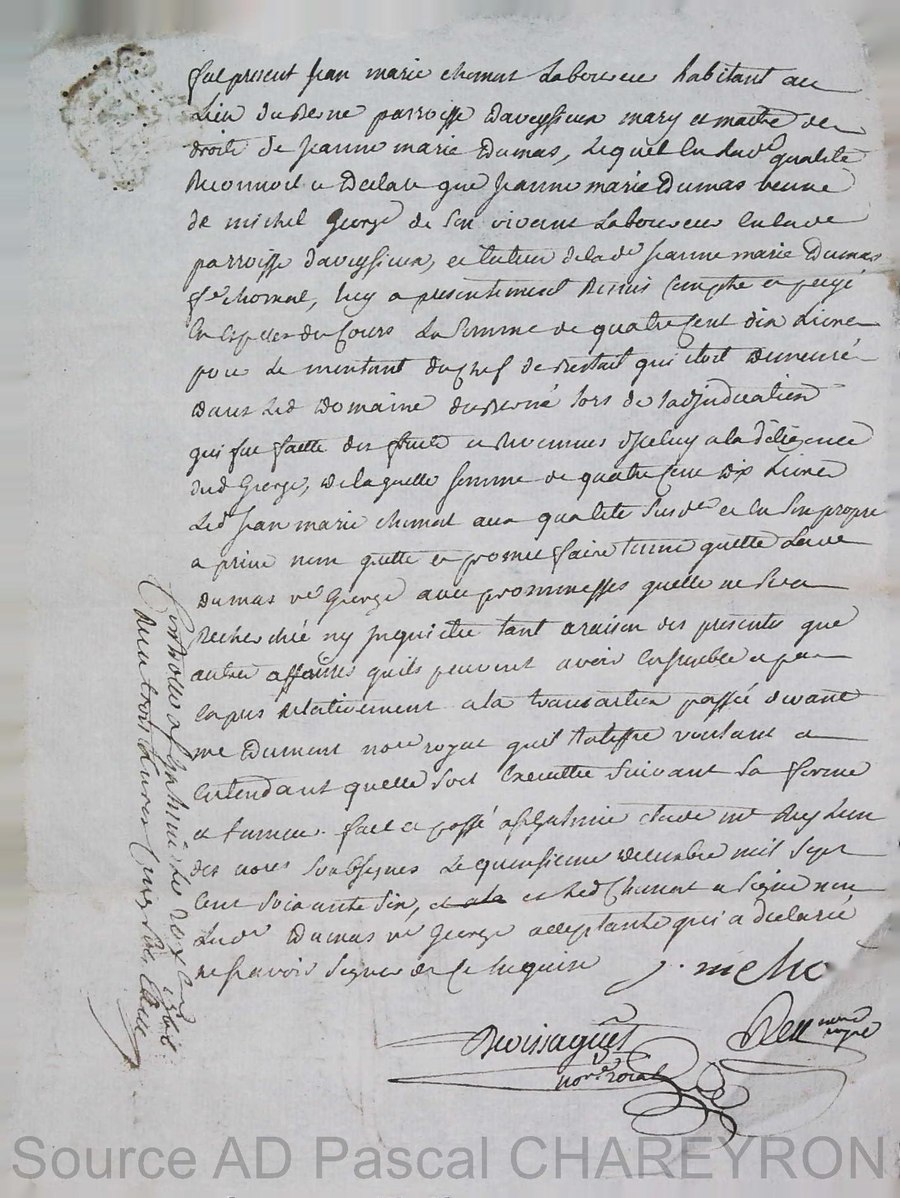 fut present Jean marie chomat Laboureur habitant au
Lieu du Berne parroisse daveysieux mary et maitre de
droits de Jeanne marie Dumas, Lequel en Lad.e qualité
Reconnoit et Declare que Jeanne marie Dumas veuve
de michel George de son vivant Laboureur en lade
parroisse daveysieux, et de lade Jeanne marie Dumas
fe chomat, luy a presentement Remis Compté et payé
En espesses du Cours La somme de quatre Cent dix Livres
pour Le montant du chef de qui etoit Demeuré
Dans Led Domaine du Berné lors de Ladjudication
qui fut faitte des fruits et Revennus diceluy a la diligence
dud George, De laquelle somme de quatre Cent Dix Livres
Led Jean marie chomat aux qualité susde et en son propre
a privé nom quitte et promet faire tenir quitte Lade
Dumas ve George avec prommesses quelle ne sera
Recherchée ny Inquiettée tant a raison des presentes que
autres affaires quils peuvent avoir Ensemble
Relativement a la transaction passé devant
me Dumont nore royal voulant et
Entendant quelle soit Executtée suivant sa forme
et teneur. fait et passé Etude me Rey Lun
des nores soubsignes Le quinsieme Decembre mil sept
Cent soixante six, et Led Chomat a signé non
Lade Dumas ve George acceptante qui a declaré
ne scavoir signer de ce Enquise J. m cho
Boissaguet
nore roial
Rey nore
royal
Controllé a Le
Reçu trois Livres